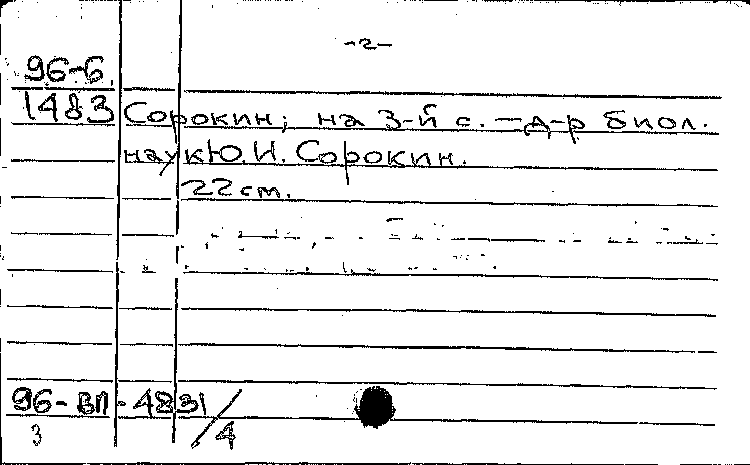 -2-
96-6
1483 Сорокин; на 3-й с. - д-р биол.
наук Ю.И. Сорокин.
22 см.
96-ВП-4831/4
3